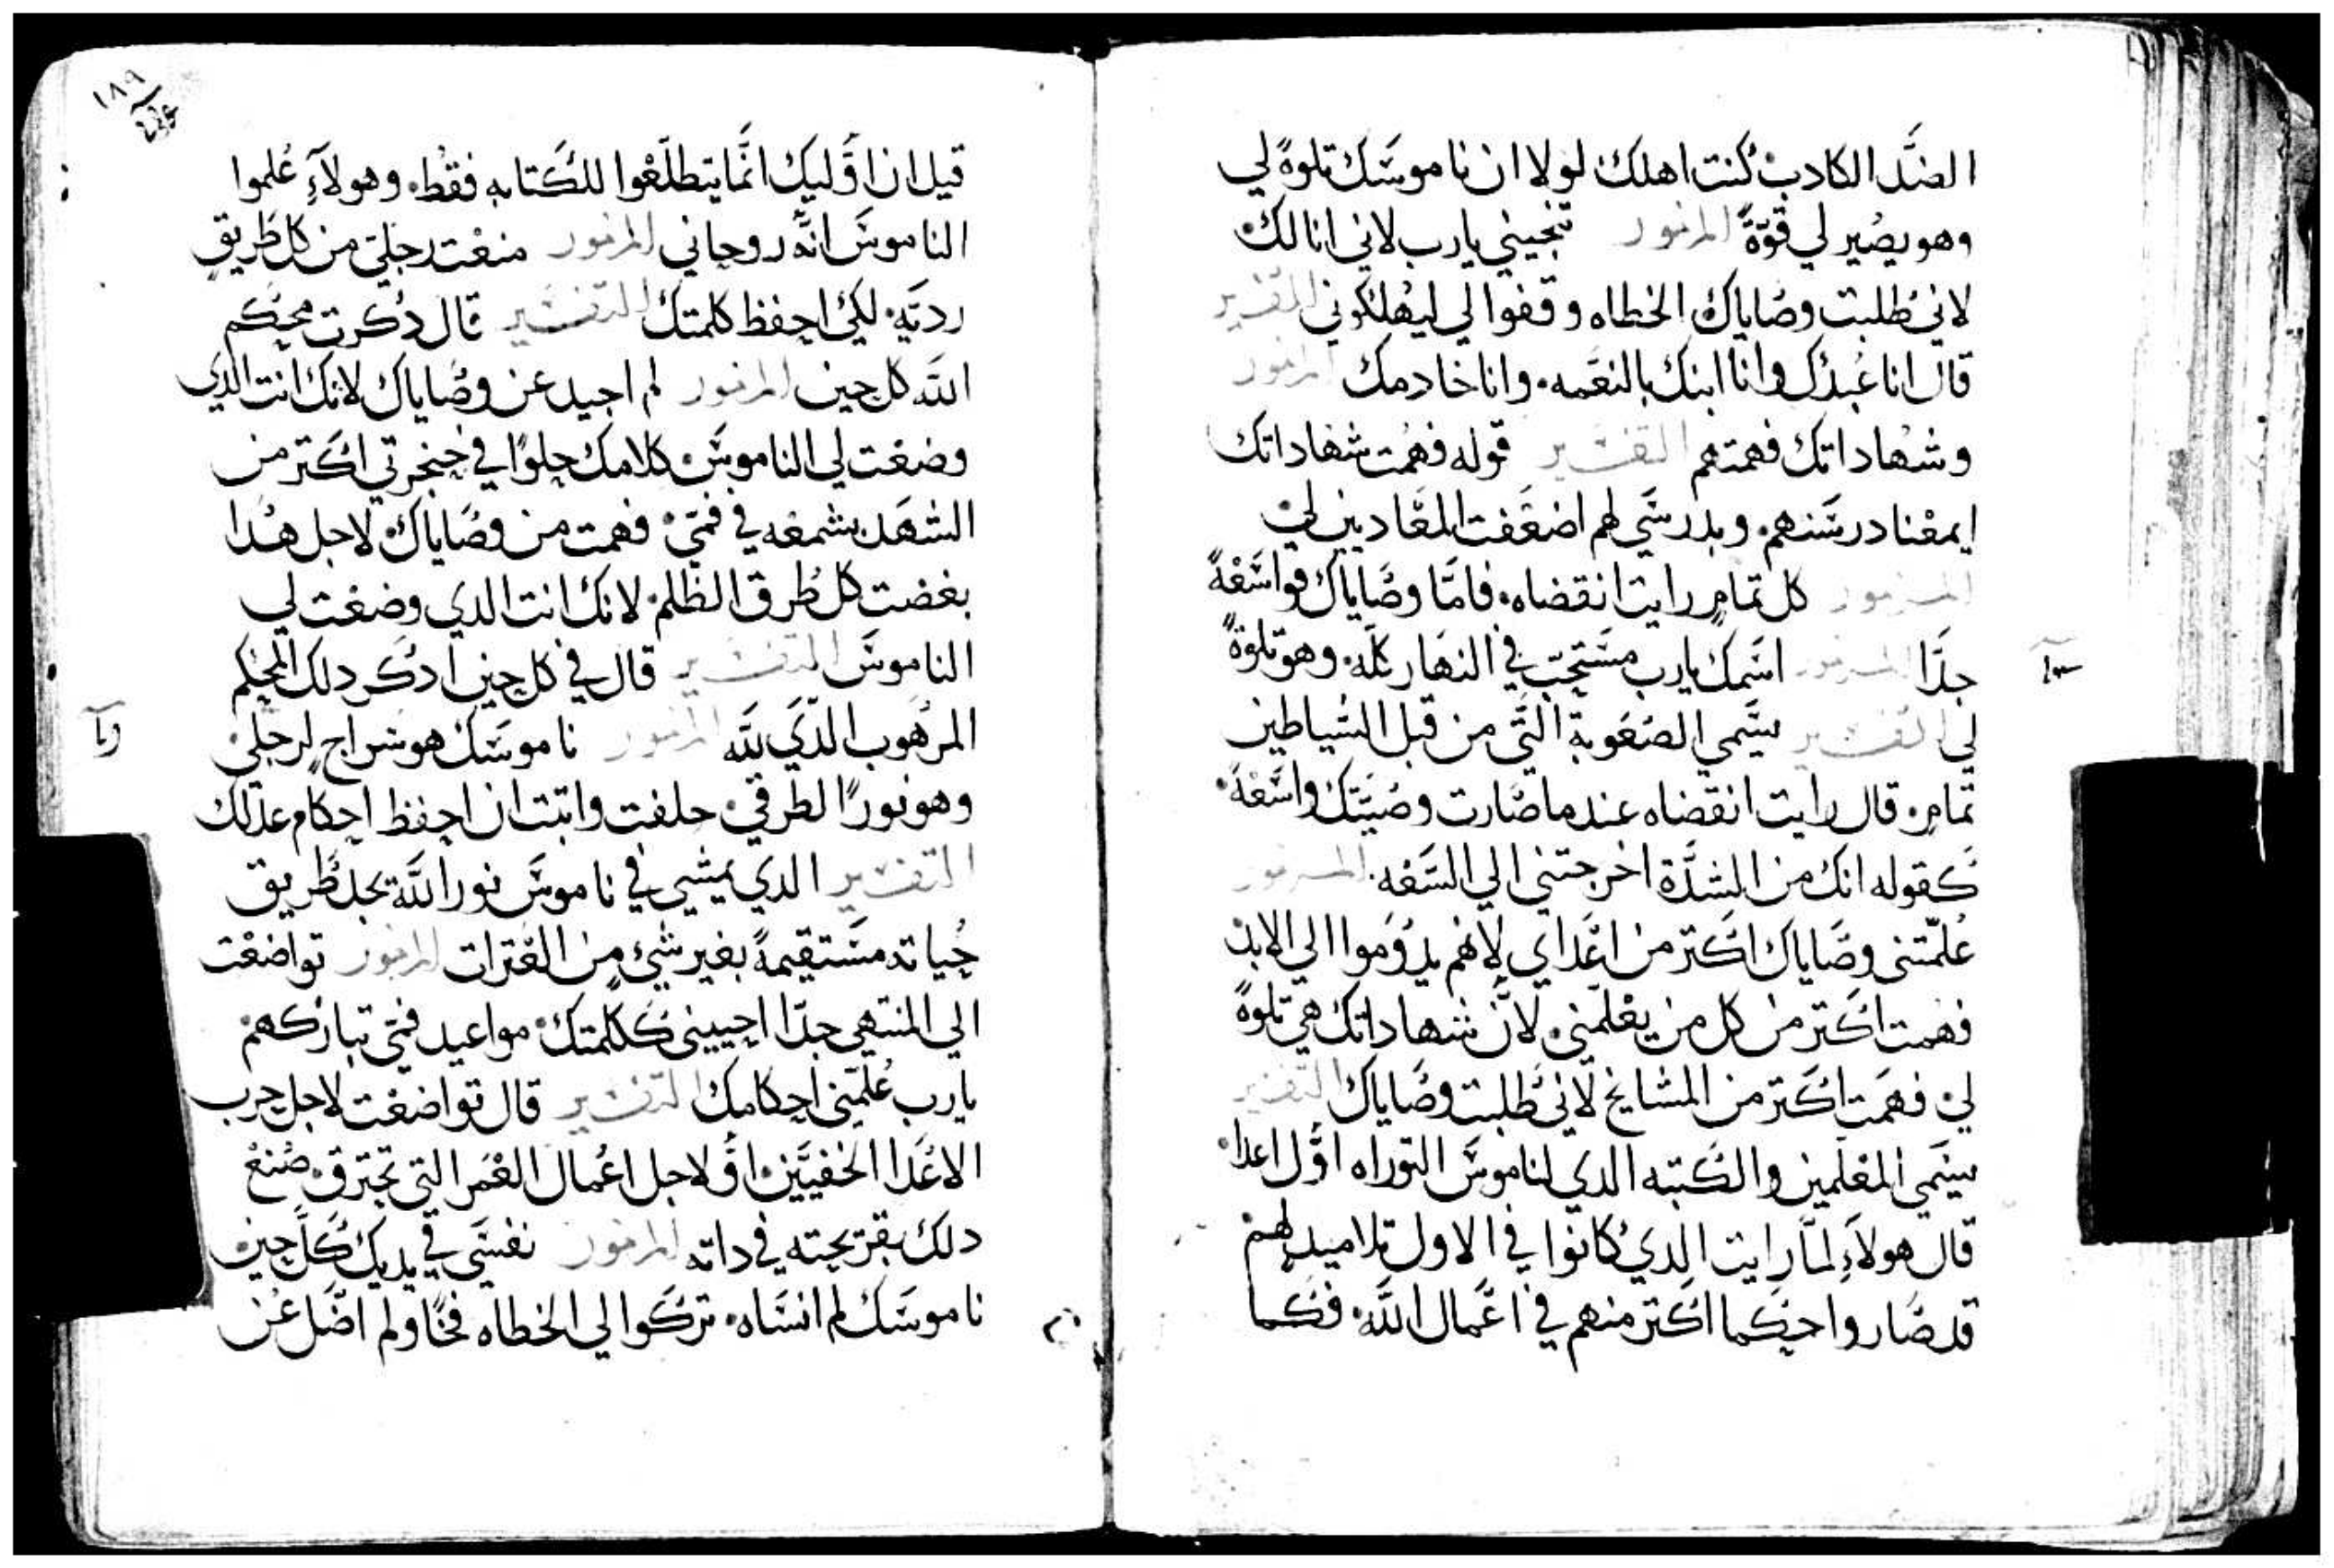 الضد الكادب كنت اهلك لولا ان ناموسك تلوةً لي
وهو يصير لي قوّةً المزمور تجيني يارب لاني انا لك
لاني طلبت وصاياك الخطاه وقفوا لي ليهلكوني التفسير
قال انا عبدك وانا ابنك بالنعمه وانا خادمك المزمور
وشهاداتك فهمتهم التفسير قوله فهمت شهاداتك
ايمعنا درسنهم وبدرسي لهم اضعفت المعاديين لي
المزمور كل تمامٍ رايت انقضاه فامّا وصاياك فواسعةً
جدًا المزمور اسمك يارب مستحبّ في النهار كله وهو تلوةً
لي التفسير يسمي الصعوبة التي من قبل الشياطين
تمام قال رايت انقضاه عند ما صارت وصيّتك واسعةً
كقوله انك من الشدّة اخرجتني الي السعه المزمور
علّمتني وصاياك اكتر من اعداي لانهم يدوموا الي الابد
فهمت اكتر من كل من يعلمني لانّ شهاداتك هي تلوةً
لي فهمت اكتر من المشايخ لاني طلبت وصاياك التفسير
يسمي المعلمين والكتبه الدي لناموس التوراه اوّل اعداه
قال هولآءِ لمّا رايت الدي كانوا في الاول تلاميد لهم
قد صاروا حكما اكتر منهم في اعمال اللّه فكما
قيل ان اوليك انّما يتطلّعوا للكتابه فقط وهولآءِ علموا
الناموس انّه روحاني المزمور منعت رجليّ من كل طريقٍ
رديّه لكي احفظ كلمتك التفسير قال دكرت محكم
اللّه كل حين المزمور لم احيد عن وصاياك لانك انت الدي
وضعت لي الناموس كلامك حلوًا في حنجرتي اكتر من
الشهد بشمعه في فمي فهمت من وصاياك لاجل هدا
بغضت كل طرق الظلم لانك انت الدي وضعت لي
الناموس التفسير قال في كل حين ادكر دلك المحكم
المرهوب الدي للّه المزمور ناموسك هو سراجٍ لرجلي
وهو نورًا لطرقي حلفت واتبت ان احفظ احكام عدلك
التفسير الدي يمشي في ناموس نور اللّه تجد طريق
حياته مستقيمةً بغير شيٍ من العترات المزمور تواضعت
الي المنتهي جدّا احييني ككلمتك مواعيد فمي تباركهم
يارب علّمني احكامك التفسير قال تواضعت لاجل حرب
الاعدا الخفيّين اوْ لاجل اعمال العمر التي تحترق صنع
دلك بقريحته في داته المزمور نفسي في يديك كل حين
ناموسك لم انساه تركوا لي الخطاه فخًا ولم اضل عن